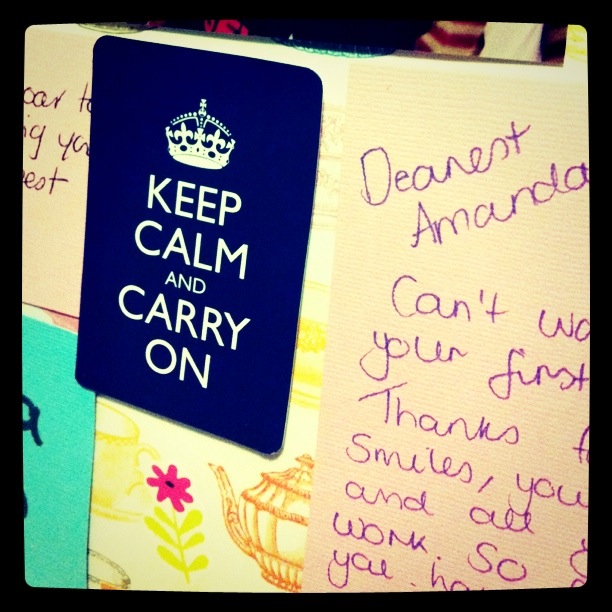 KEEP
CALM
AND
CARRY
ON
Dearest
Amanda
Can't
your first
Thanks
smiles, you
and all
work. So
you